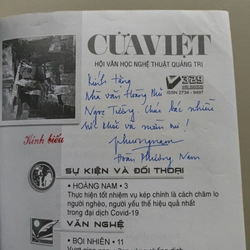 CỬA VIỆT
HỘI VĂN HỌC NGHỆ THUẬT QUẢNG TRỊ
329
ISSN 2734 - 9497
Kính tặng
Nhà văn Hoàng Phủ
Ngọc Tường. Chúc bác nhiều
sức khoẻ và mãn nguyện!
phuongnam
Hoàng Phương Nam
Kính biếu
SỰ KIỆN VÀ ĐỐI THOẠI
• HOÀNG NAM • 3
Thực hiện tốt nhiệm vụ kép chính là cách chăm lo
người nghèo, người yếu thế hiệu quả nhất
trong đại dịch Covid-19
VĂN NGHỆ
• BỘI NHIÊN • 11